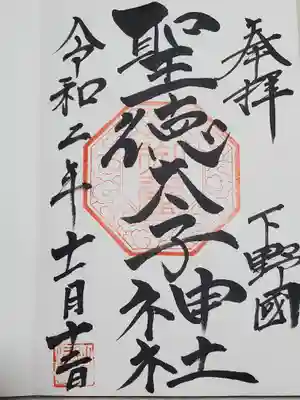 奉拝
下野國
聖徳太子神社
令和二年十一月十 日